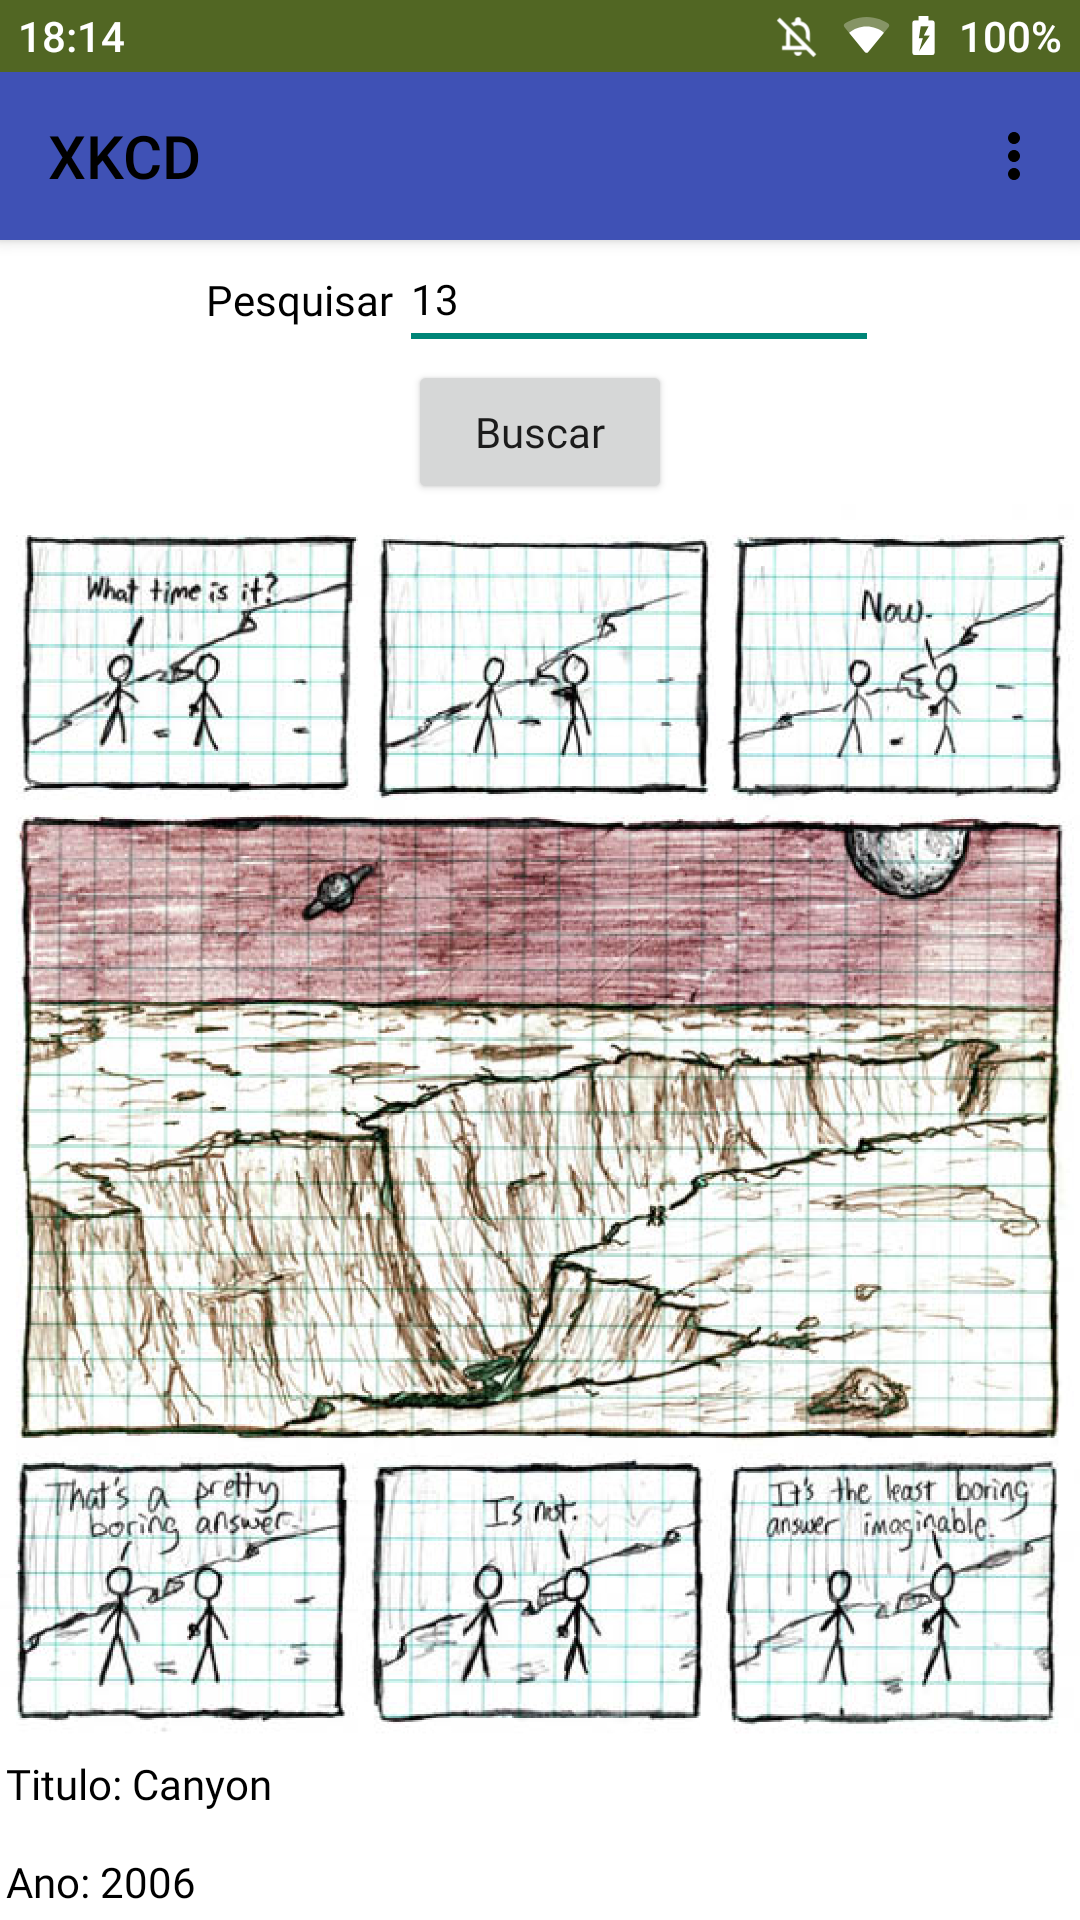 18:14 100%
XKCD
Pesquisar 13
Buscar
What time is it?
Now.
That's a pretty
boring answer.
Is not.
It's the least boring
answer imaginable.
Titulo: Canyon
Ano: 2006